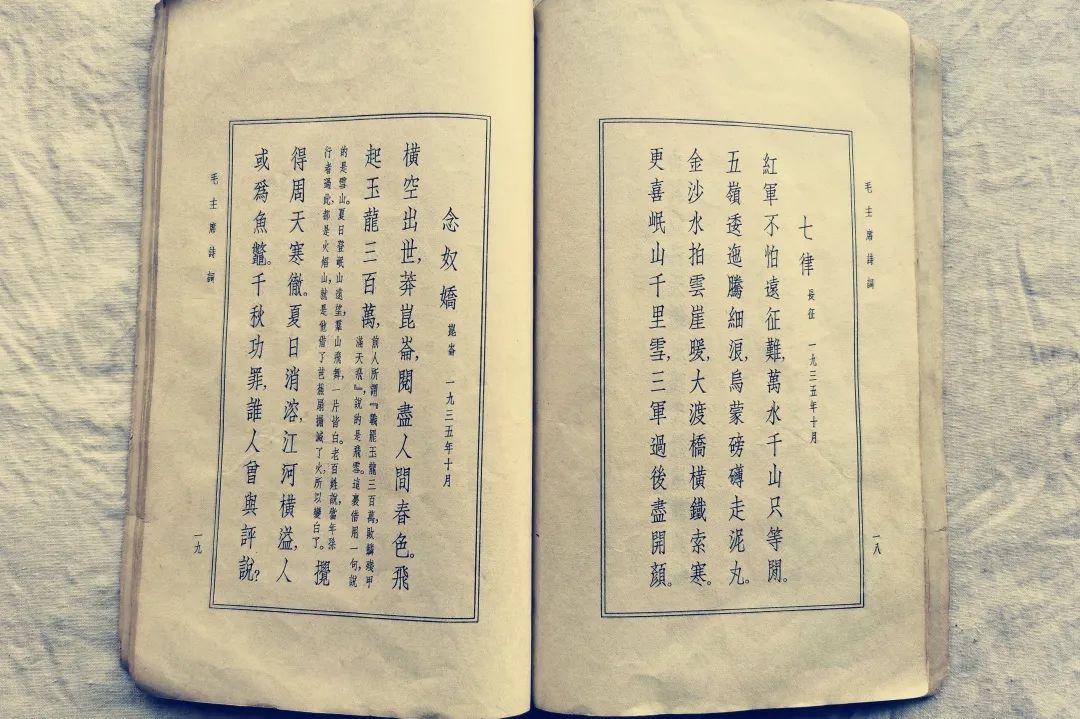 毛主席詩詞
七律 長征 一九三五年十月
紅軍不怕遠征難,萬水千山只等閒。
五嶺逶迤騰細浪,烏蒙磅礴走泥丸。
金沙水拍雲崖暖,大渡橋橫鐵索寒。
更喜岷山千里雪,三軍過後盡開顏。
一八
念奴嬌 崑崙 一九三五年十月
橫空出世,莽崑崙,閱盡人間春色。飛
起玉龍三百萬,
前人所謂『戰罷玉龍三百萬,敗鱗殘甲
滿天飛』,說的是飛雪。這裏借用一句,說
的是雪山。夏日登岷山遠望,羣山飛舞,一片皆白。老百姓說,當年孫
行者過此,都是火焰山,就是他借了芭蕉扇搧滅了火,所以變白了。
攪
得周天寒徹。夏日消溶,江河橫溢,人
或爲魚鼈。千秋功罪,誰人曾與評說?
毛主席詩詞
一九